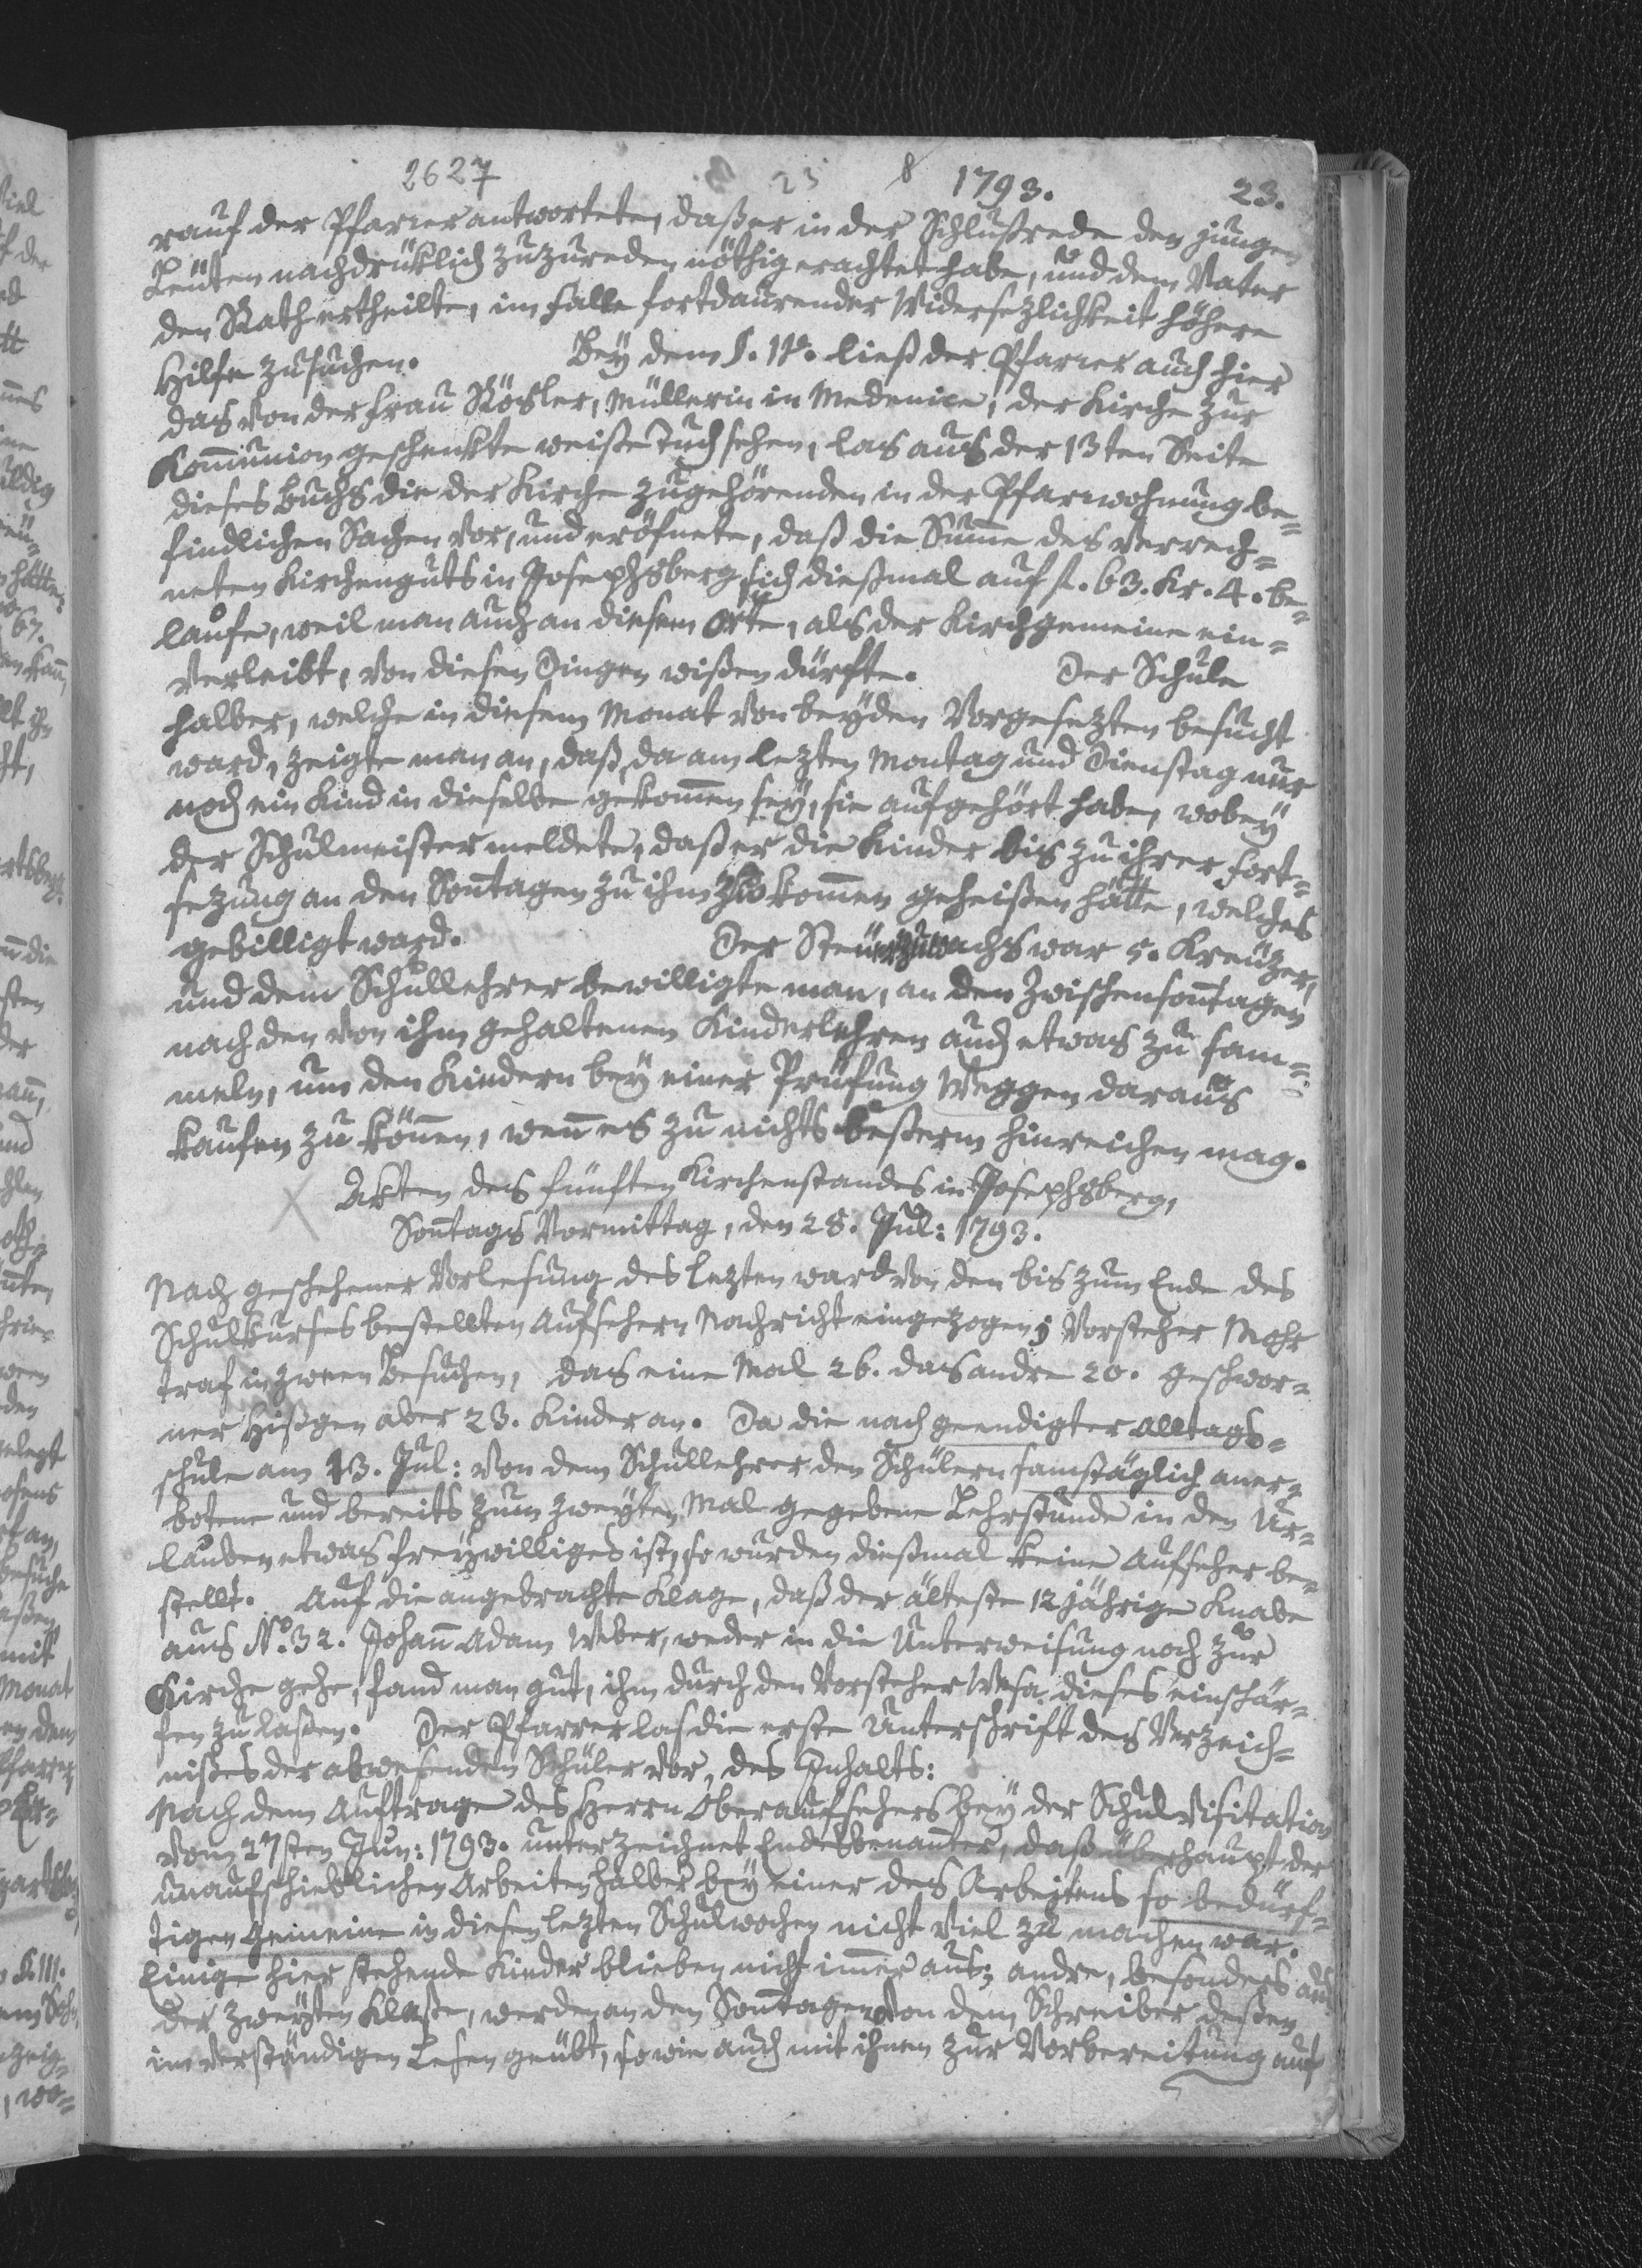 2627 23 8 1793. 23.
rauf der Pfarrer antwortete, daß er in der Schlußrede den jungen
Leuten nachdrüklich zuzureden nöthig erachtet habe, und dem Vater
den Rath ertheilte, im Falle fortdaurender Widersezlichkeit höhere
Hilfe zu suchen. Bey dem ließ der Pfarrer auch hier
das von der Frau Rösler, Müllerin in Medenice, der Kirche zur
Kommunion geschenkte weiße Tuch sehen, las aus der 13ten Seite
dieses Buchs die der Kirche zugehörenden in der Pfarrwohnung be=
findlichen Sachen vor, und eröfnete, daß die Summe des verrech=
neten Kirchenguts in Josephsberg sich dießmal auf fl. 63. Kr. 4. be=
laufe, weil man auch an diesem Orte, als der Kirchgemeine ein=
verleibt, von diesen Dingen wißen dürfte. Der Schule
halber, welche in diesem Monat von beyden Vorgesezten besucht
ward, zeigte man an, daß, da am lezten Montag und Dienstag nur
noch ein Kind in dieselbe gekommen sey, sie aufgehört habe, wobey
der Schulmeister meldete, daß er die Kinder bis zu ihrer Fort=
sezung an den Sonntagen zu ihm zu kommen geheißen hätte, welches
gebilligt ward. Der Steuerzuwachs war 5. Kreuzer,
und dem Schullehrer bewilligte man, an den Zwischensonntagen
nach den von ihm gehaltenen Kinderlehren auch etwas zu sam=
meln, um den Kindern bey einer Prüfung Weggen daraus
kaufen zu können, wenn es zu nichts beßerm hinreichen mag.
Akten des fünften Kirchenstandes in Josephsberg,
Sonntags Vormittag, den 28. Jul: 1793.
Nach geschehener Vorlesung des lezten ward von den bis zum Ende des
Schulkurses bestellten Aufsehern Nachricht eingezogen; Vorsteher Mohr
traf in zween Besuchen, das eine Mal 26. das andre 20. Geschwor=
ner Hißgen aber 23. Kinder an. Da die nach geendigter Alltags=
schule am 13. Jul: von dem Schullehrer den Schülern samstäglich aner=
botene und bereits zum zweyten Mal gegebene Lehrstunde in den Ur=
lauben etwas freywilliges ist, so wurden dießmal keine Aufseher be=
stellt. Auf die angebrachte Klage, daß der älteste 12jährige Knabe
aus No. 32. Johann Adam Weber, weder in die Unterweisung noch zur
Kirche gehe, fand man gut, ihm durch den Vorsteher Wesa dieses einschär=
fen zu laßen. Der Pfarrer las die erste Unterschrift des Verzeich=
nißes der abwesenden Schüler vor, des Inhalts:
Nach dem Auftrage des Herrn Oberaufsehers bey der Schulvisitation
vom 27sten Jun: 1793. unterzeichnet Endesbenannter, daß überhaupt der
unaufschieblichen Arbeiten halber bey einer des Arbeitens so bedürf=
tigen Gemeine in diesen lezten Schulwochen nicht viel zu machen war.
Einige hier stehende Kinder blieben nicht immer aus; andre, besonders aus
der zweyten Klaße, werden an den Sonntagen von dem Schreiber deßen
im verständigen Lesen geübt, so wie auch mit ihnen zur Vorbereitung auf